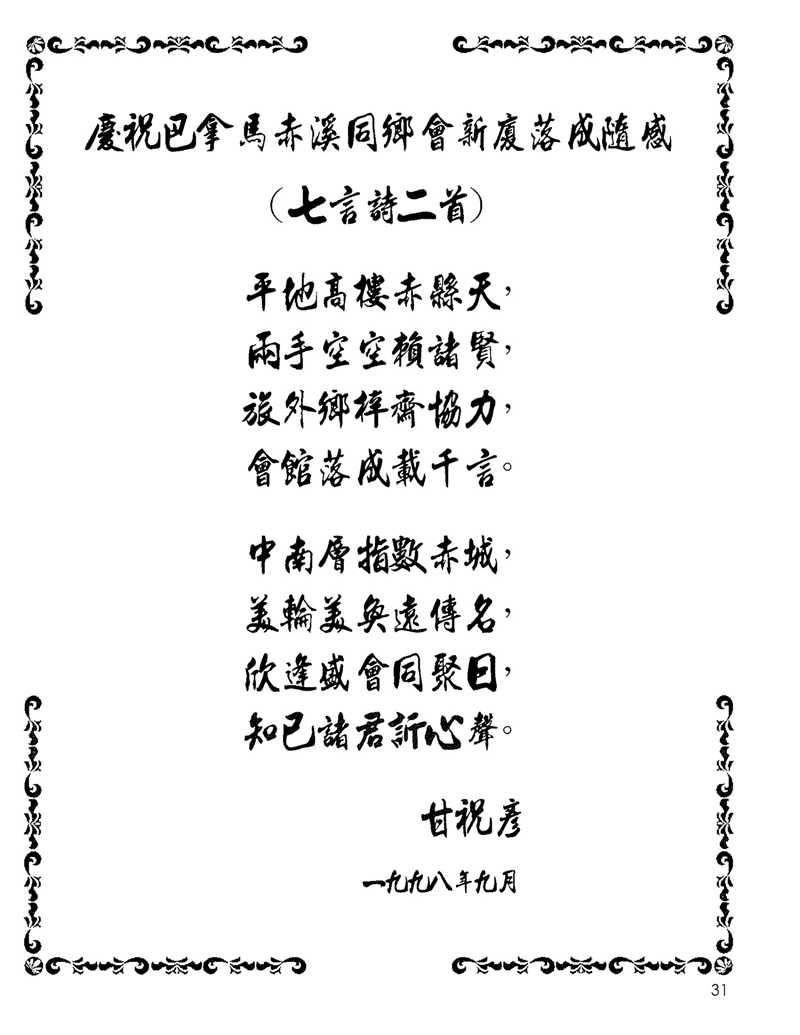 慶祝巴拿馬赤溪同鄉會新廈落成隨感
（七言詩二首）
平地高樓赤縣天，
兩手空空賴諸賢，
旅外鄉梓齊協力，
會館落成載千言。
中南層指數赤城，
美輪美奐遠傳名，
欣逢盛會同聚日，
知已諸君訴心聲。
甘祝彥
一九九八年九月
31